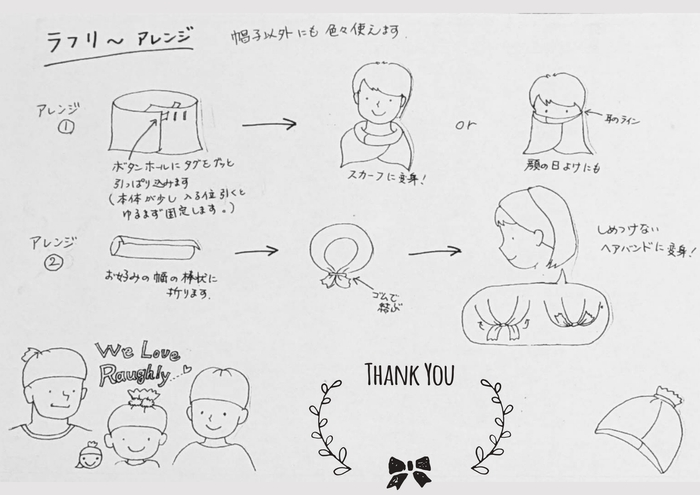 ラフリ〜 アレンジ
帽子以外にも 色々使えます
アレンジ
①
ボタンホールにタグをグッと
引っぱり込みます
(本体が少し入る位引くと
ゆるまず固定します。)
スカーフに変身!
or
耳のライン
顔の日よけにも
アレンジ
②
お好みの幅の棒状に
折ります.
ゴムで
結ぶ
しめつけない
ヘアバンドに変身!
We Love
Raughly....
THANK YOU